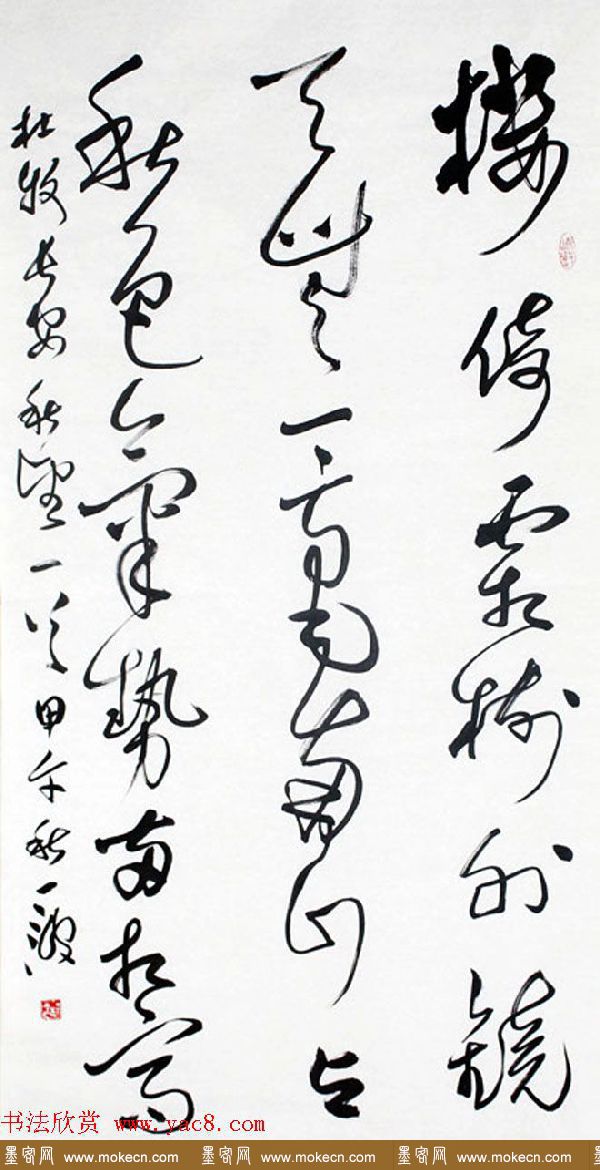 樓倚霜樹外鏡
天無一毫南山与
秋色氣勢兩相高
杜牧長安秋望一首甲午秋一
书法欣赏 www.yac8.com
墨客网 www.mokecn.com 墨客网 www.mokecn.com 墨客网 www.mokecn.com